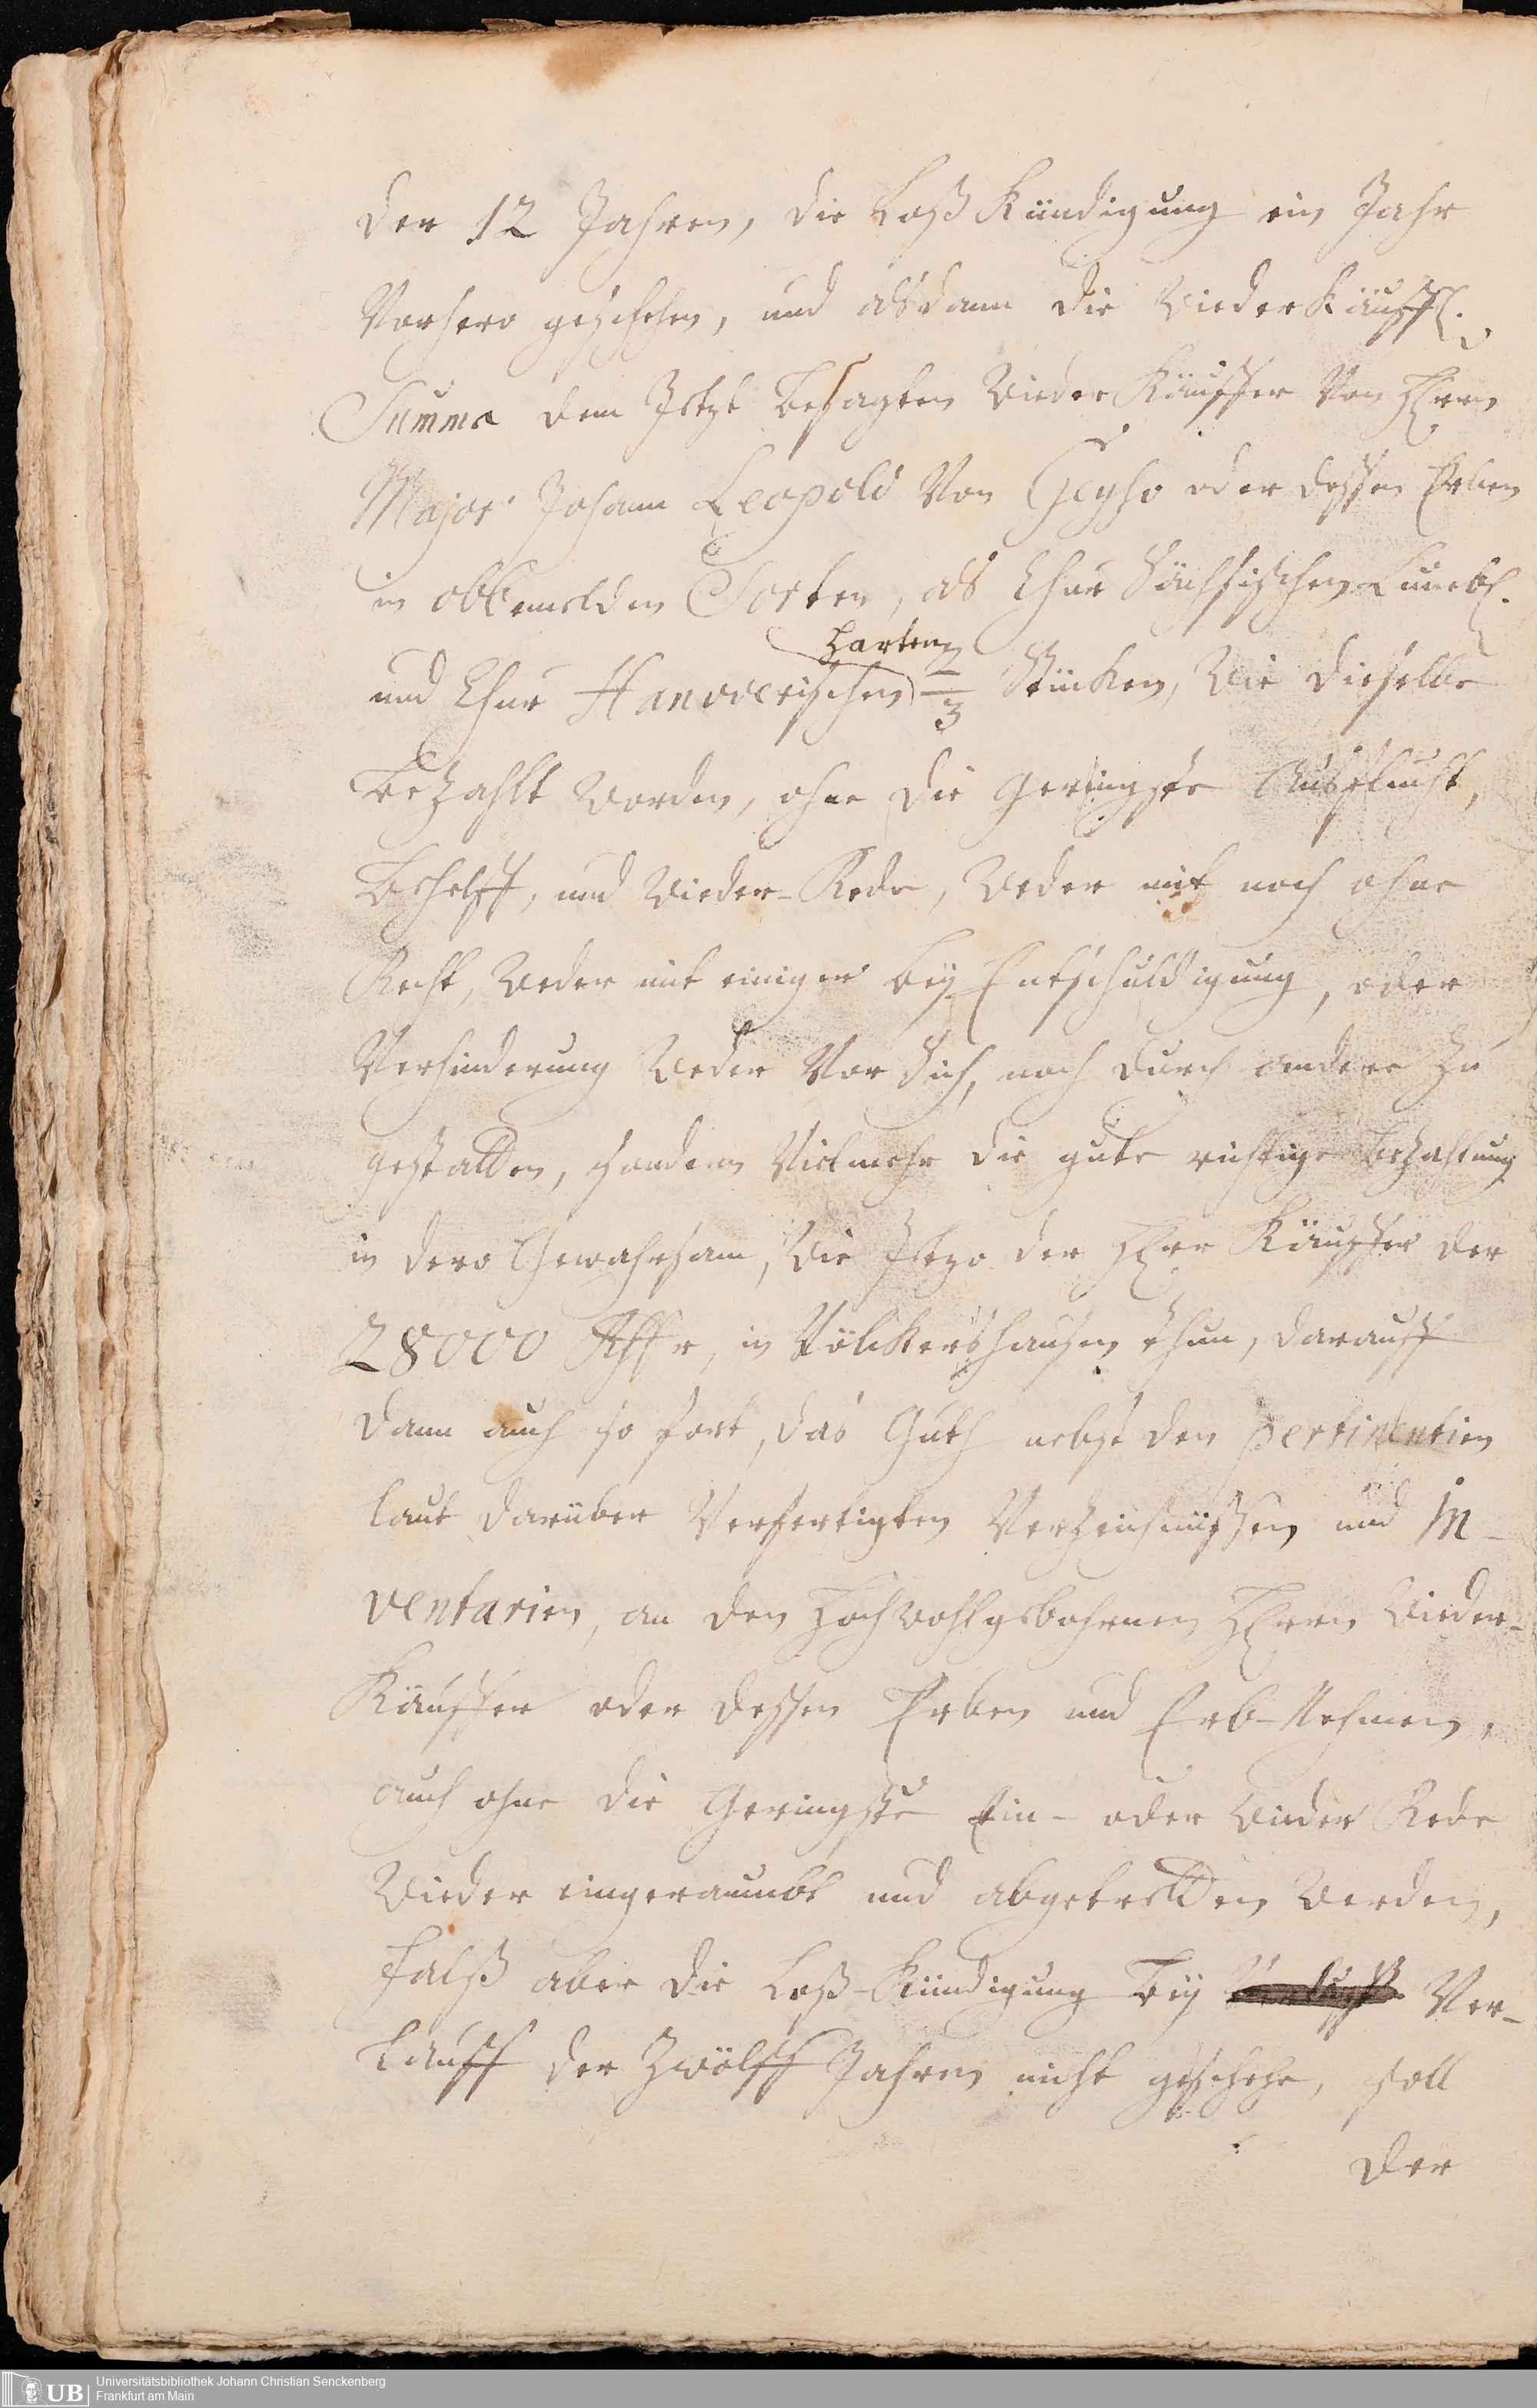 der 12 Jahren, die Loß Kündigung ein Jahr
Vorhero geschehen, und alsdann die WiederKäuffl.
Summa dem Jetzt besagten WiederKäuffer Von Herrn
Major Johann Leopold Von Geyso oder dessen Erben
in obbemelden Sorten, als Chur Sächsischen Lüneb.
harten
und Chur Hanoverischen 2/3 Stücken, Wie dieselbe
bezahlt worden, ohne die Geringste Ausflucht,
Behelff, und Wieder-Rede, Weder mit noch ohne
Recht, Weder mit einiger bey Entschuldigung, oder
Verhinderung Weder Vor Sich, noch durch andere zu
gestatten, sondern Vielmehr die gute richtige bezahlung
in dero Gewahrsam, Wie Jetzo der Herr Käuffer der
28000 Rthlr, in Völckershausen thun, darauff
dann auch so fort, das Guth nebst den pertinentien
laut darüber Verfertigten Verzeichnüssen und in-
ventarien, an den Hochwohlgebohrnen Herrn Wieder-
Käuffer oder dessen Erben und Erb-Nehmen,
auch ohne die Geringste Ein- oder Wieder Rede
Wieder eingeraumbt und abgetretten Werden,
falß aber die Loß-Kündigung bey Ver-
lauff der Zwölff Jahren nicht geschehe, soll
der
UB
Universitätsbibliothek Johann Christian Senckenberg
Frankfurt am Main